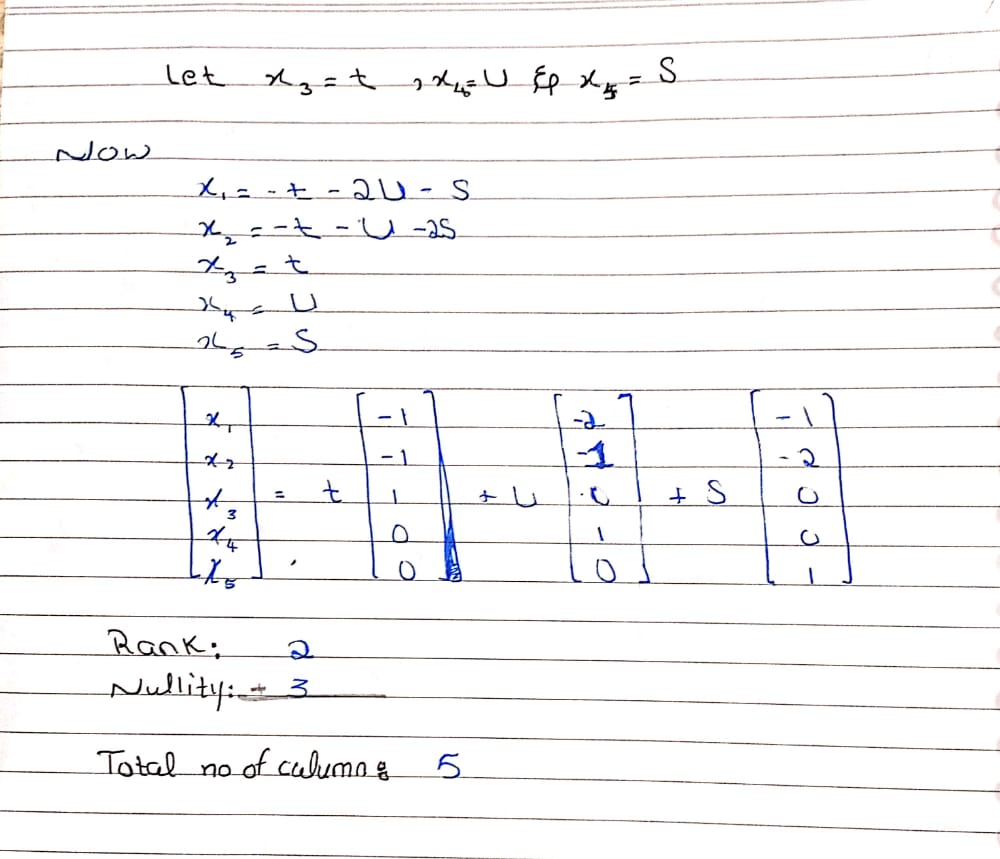 Let x₃ = t , x₄ = U & x₅ = S
Now
x₁ = - t - 2U - S
x₂ = - t - U - 2S
x₃ = t
x₄ = U
x₅ = S
[x₁ x₂ x₃ x₄ x₅] = t [-1 -1 1 0 0] + U [-2 -1 0 1 0] + S [-1 -2 0 0 1]
Rank: 2
Nullity: + 3
Total no of culumns 5